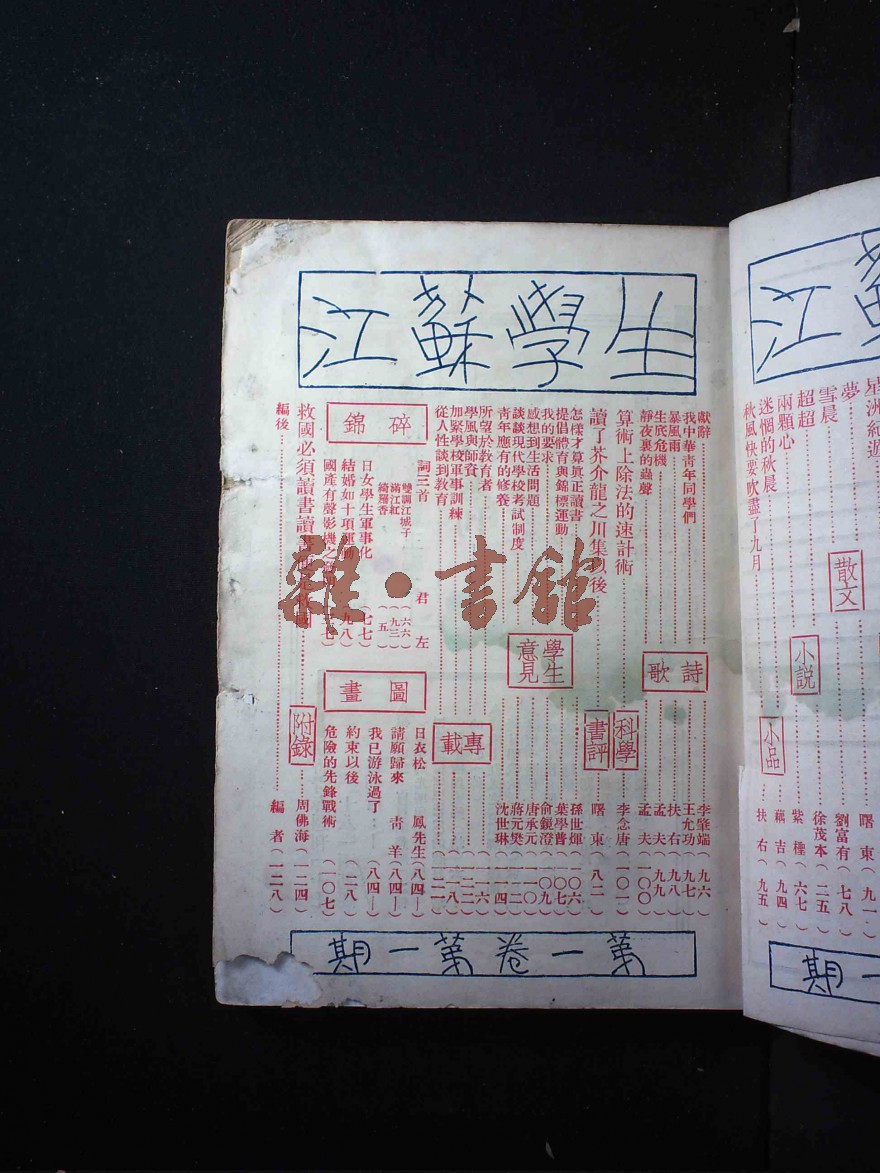 江蘇學生
詩歌
獻辭 李肇端(九六)
我中華青年同學們 王允功(九七)
暴風雨 扶右(九八)
生底危機 孟夫(九九)
靜夜裏的蟲聲 孟夫(一〇〇)
科學
算術上除法的速計術 李念唐(一〇一)
書評
讀了芥介龍之川集以後 曙東(八二)
學生意見
怎樣才算真正讀書 孫世煇(一〇六)
提倡體育與錦標運動 葉學普(一〇七)
我的要求 俞鍰澄(一〇九)
感想到生活問題 唐承元(一一〇)
談談現代學校考試制度 蔣元樊(一一二)
青年應有的修養 沈世琳(一一四)
專載
所望於教育者 (一一六)
學風與師資
加緊學校軍事訓練
從人性談到教育 (一二一)
碎錦
詞三首 君左
雙調江城子 (六六)
滿江紅 (九三)
綺羅香 (五)
日女學生軍事化 (七七)
結婚如十項運動 九八)
國產有聲影機之
圖畫
日衣松 鳳先生(八四—)
請願歸來 青羊(八四—)
我已游泳過了 (八四—)
約束以後 (二八)
危險的先鋒戰術 (一〇七)
附錄
救國必須讀書讀書 救國 周佛海(一二四)
編後 編者(一二八)
第一卷第一期
雜·書館
江蘇
星洲紀遊
夢 曙東(九一)
散文
雪晨 劉富有(七八)
超超 徐茂本(二五)
小說
兩顆心 紫槿(六七)
迷惘的秋晨 藕吉(九四)
小品
秋風快要吹盡了九月 扶右(九五)
一期